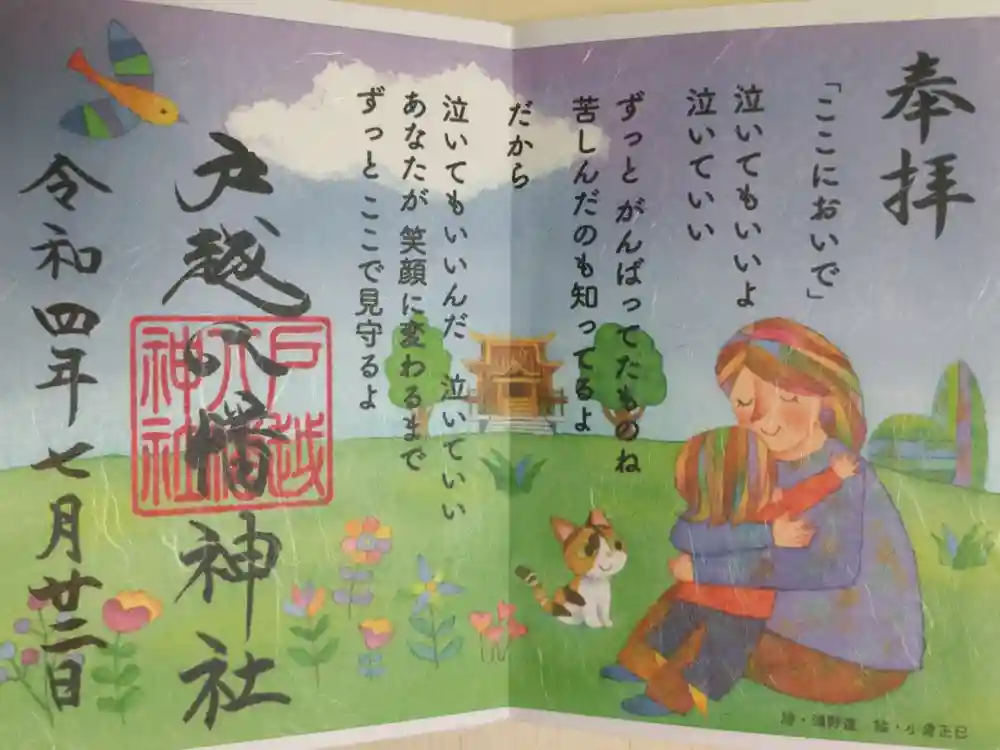 奉拝
「ここにおいで」
泣いてもいいよ
泣いていい
ずっとがんばってたものね
苦しんだのも知ってるよ
だから
泣いてもいいんだ 泣いていい
あなたが笑顔に変わるまで
ずっとここで見守るよ
戸越八幡神社
戸越
八幡
神社
令和四年七月廿二日
小倉正巳